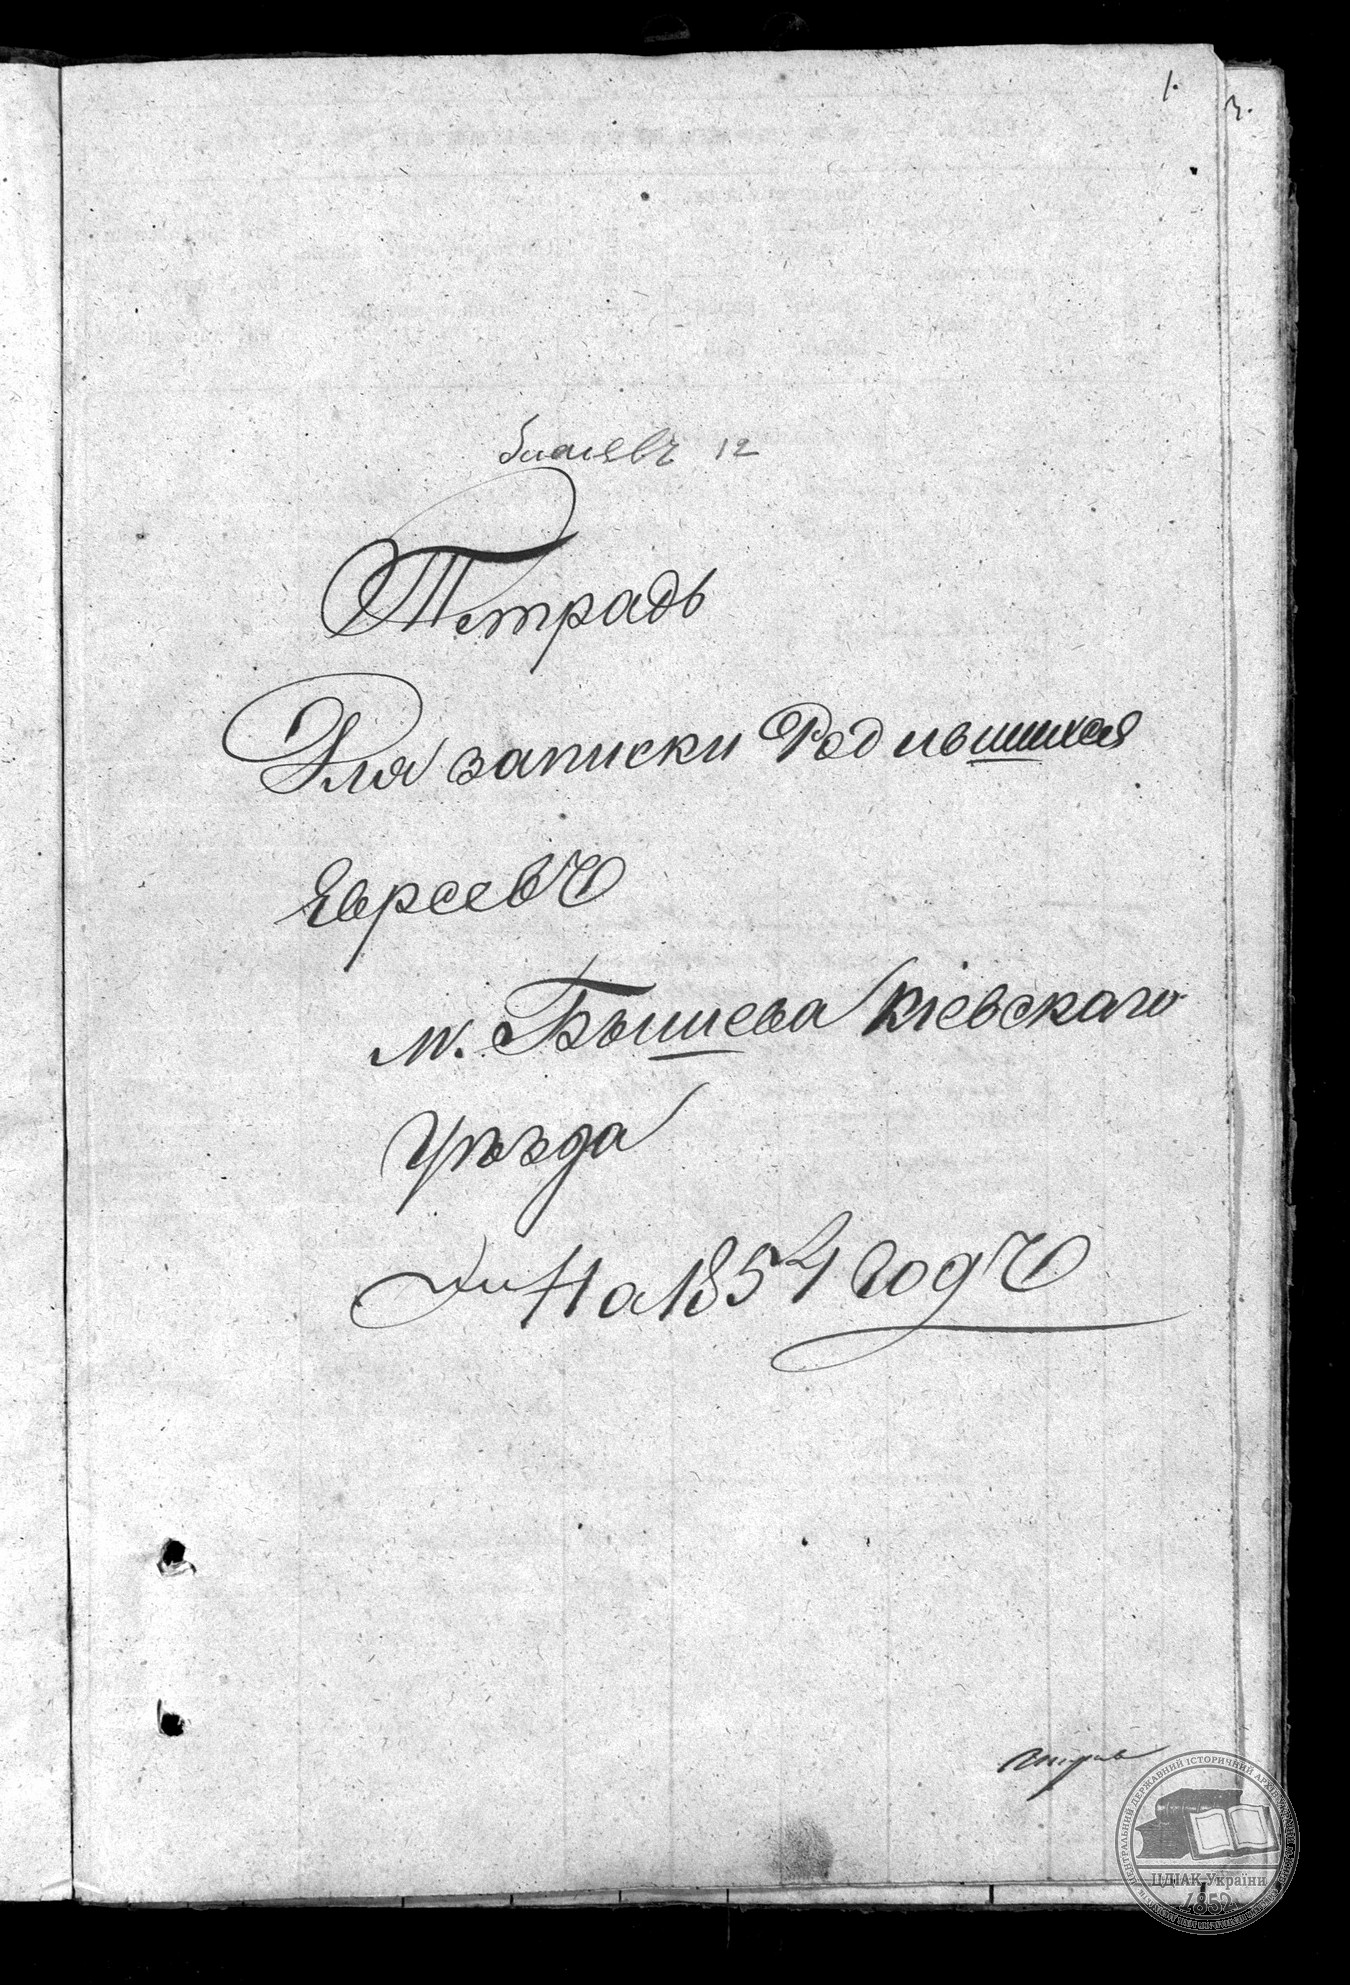 1.
3.
12
Тетрадь
Для записки Родившихся
Евреевъ
м. Бышева Кіевскаго
Уѣзда
На 1854 годъ
ЦЕНТРАЛЬНИЙ ДЕРЖАВНИЙ ІСТОРИЧНИЙ АРХІВ УКРАЇНИ
ЦДІАК України
1852